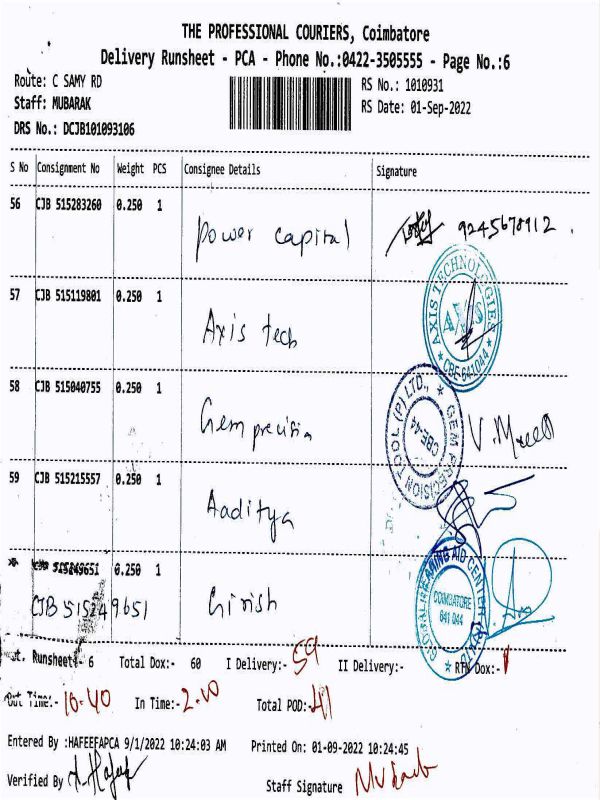 THE PROFESSIONAL COURIERS, Coimbatore
Delivery Runsheet - PCA - Phone No.:0422-3505555 - Page No.:6
Route: C SAMY RD
RS No.: 1010931
Staff: MUBARAK
RS Date: 01-Sep-2022
DRS No.: DCJB101093106
S No Consignment No Weight PCS Consignee Details Signature
56 CJB 515283260 0.250 1 power capital 9245678912
57 CJB 515119801 0.250 1 Axis tech
AXIS TECHNOLOGIES
AXIS
CBE-641044
58 CJB 515040755 0.250 1 Gem precision
GEM PRECISION TOOL (P) LTD.,
CBE-44
59 CJB 515215557 0.250 1 Aaditya
515249651 0.250 1 Girish
CJB 515249651
HEARING AID CENTER
COIMBATORE
641 044
Runsheet:- 6 Total Dox:- 60 I Delivery:- 59 II Delivery:- RTN Dox:- 1
Out Time:- 10.40 In Time:- 2.10 Total POD:- 41
Entered By :HAFEEFAPCA 9/1/2022 10:24:03 AM Printed On: 01-09-2022 10:24:45
Verified By
Staff Signature Mubarak